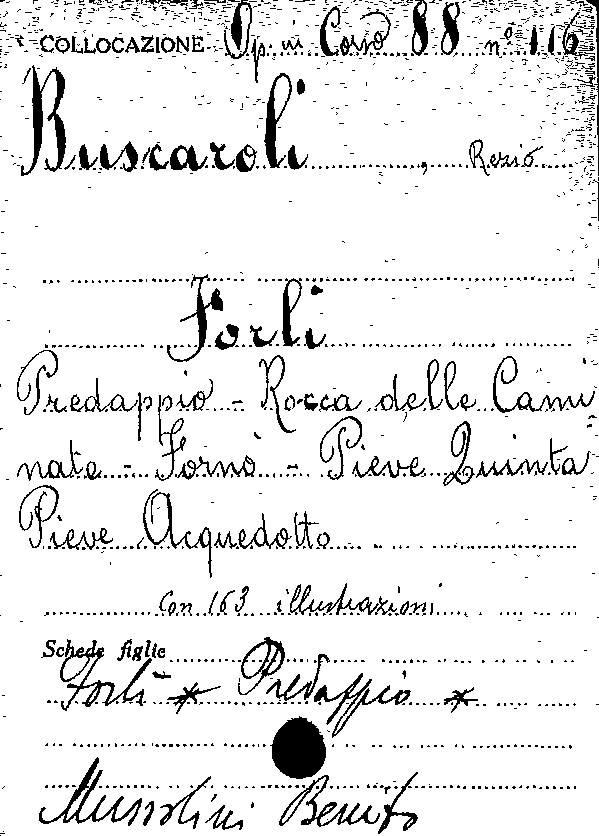 COLLOCAZIONE Op. in Corso 88 n° 116
Buscaroli, Rezio
Forlì
Predappio - Rocca delle Cami-
nate - Fornò - Pieve Quinta
Pieve Acquedotto
Con 163 illustrazioni
Schede figlie
Forlì * Predappio *
Mussolini Benito